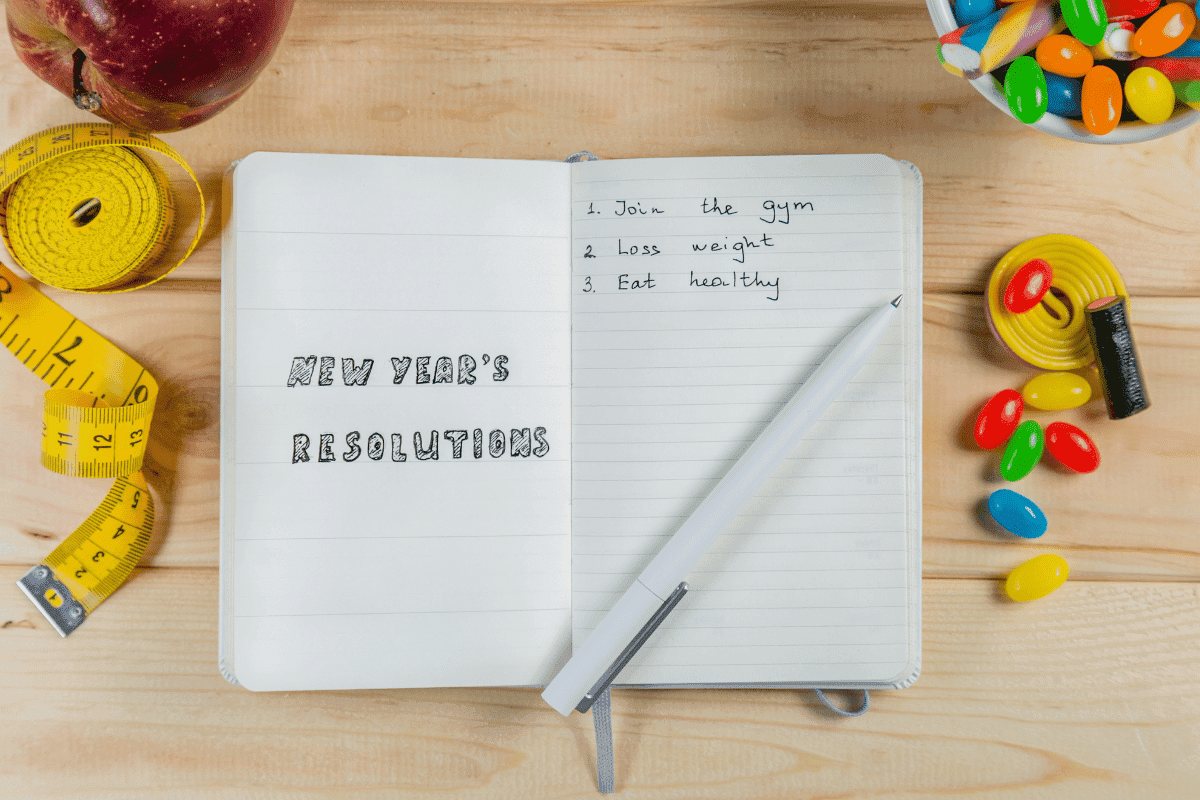 NEW YEAR'S
RESOLUTIONS
1. Join the gym
2. Loss weight
3. Eat healthy
11 12 13
5
4
3
2
1